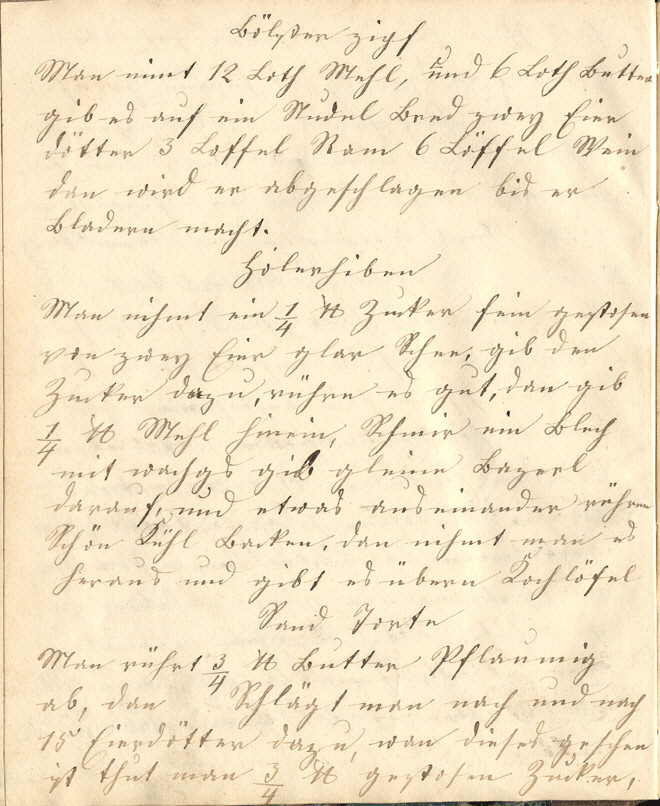 Bölster zipf
Man nimt 12 Loth Mehl, und 6 Loth Butter
gib es auf ein Nudel Bred zwey Eier
dötter 3 Loffel Ram 6 Löffel Wein
dan wird er abgeschlagen bis er
Bladern macht.
Holerhiben
Man nihmt ein 1/4 ℔ Zucker fein gestosen
von zwey Eier glar Schne, gib den
Zucker dazu, rühre es gut, dan gib
1/4 ℔ Mehl hinein, Schmir ein Blech
mit wachgs gib gleine Bazerl
darauf, und etwas auseinander rühren
Schön Kühl Backen, dan nihmt man es
heraus und gibt es übern Kochlöfel
Sand Torte
Man rührt 3/4 ℔ Butter Pflaumig
ab, dan Schlägt man nach und nach
15 Eierdötter dazu, wan dieses geschen
ist thut man 3/4 ℔ gestosen Zucker,